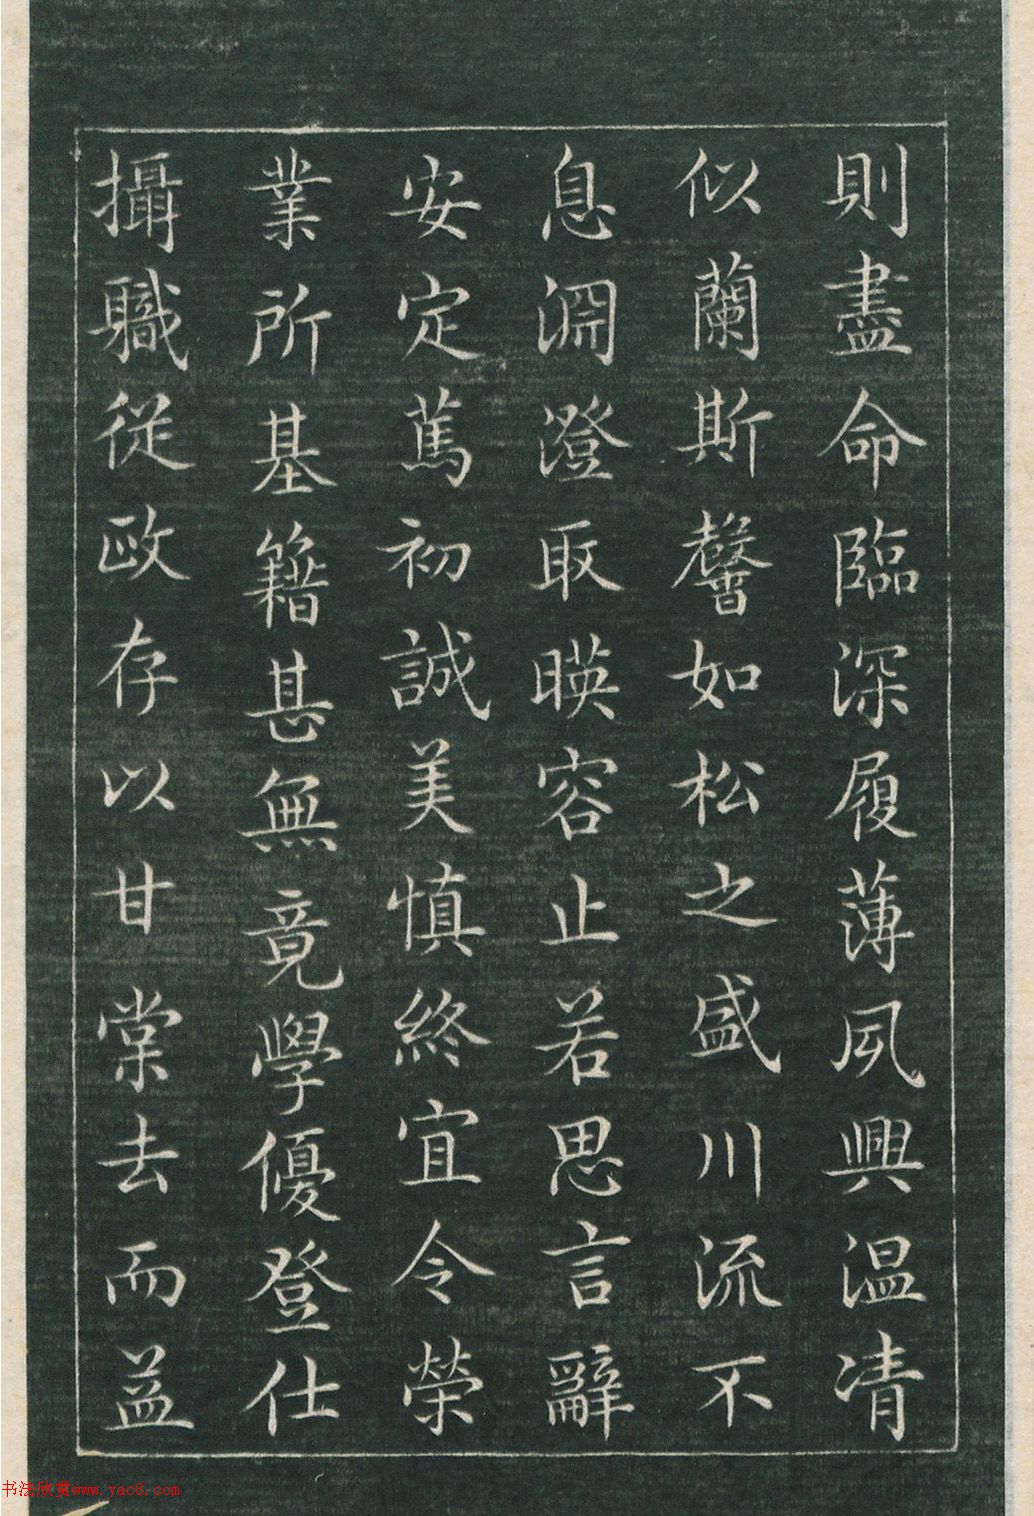 則盡命臨深履薄夙興温凊
似蘭斯馨如松之盛川流不
息淵澄取暎容止若思言辭
安定篤初誠美慎終宜令榮
業所基籍甚無竟學優登仕
攝職從政存以甘棠去而益
书法欣赏www.yac8.com